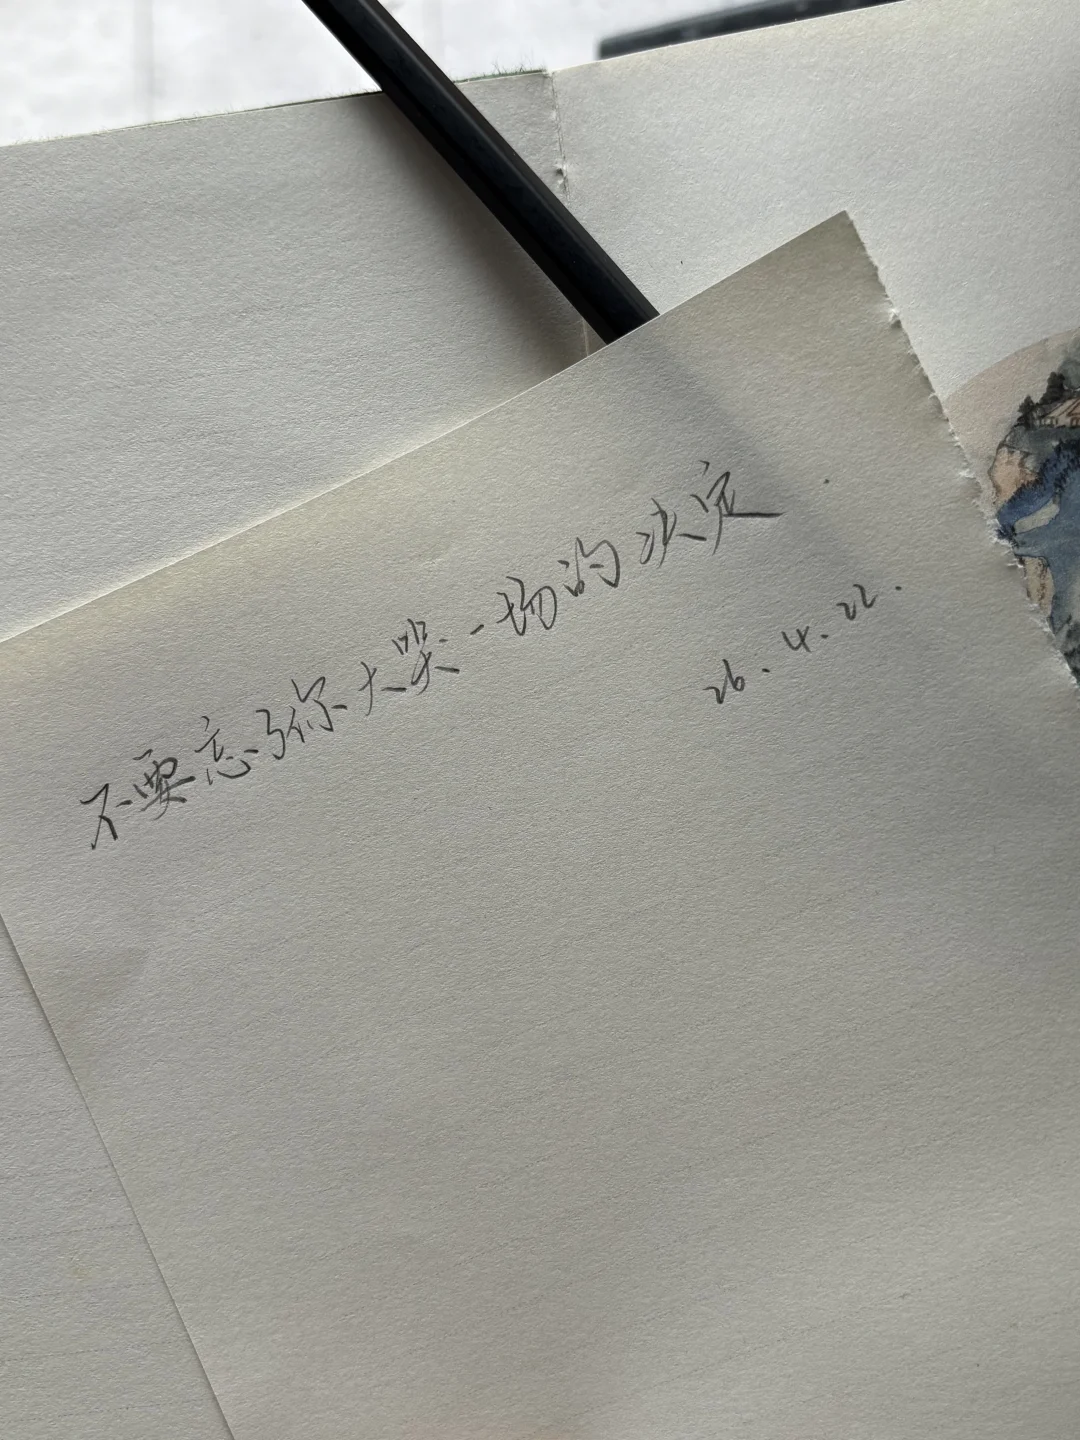 不要忘了你大哭一场的决定
26.4.22.